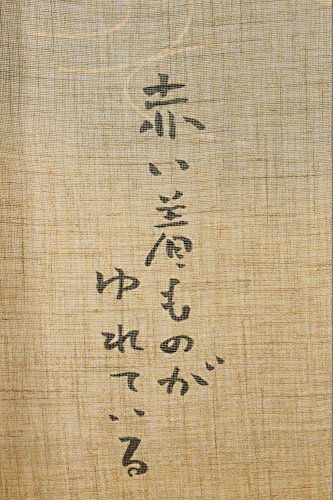 赤い着ものが
ゆれている